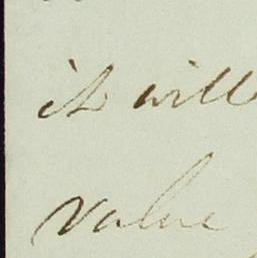 it will
value